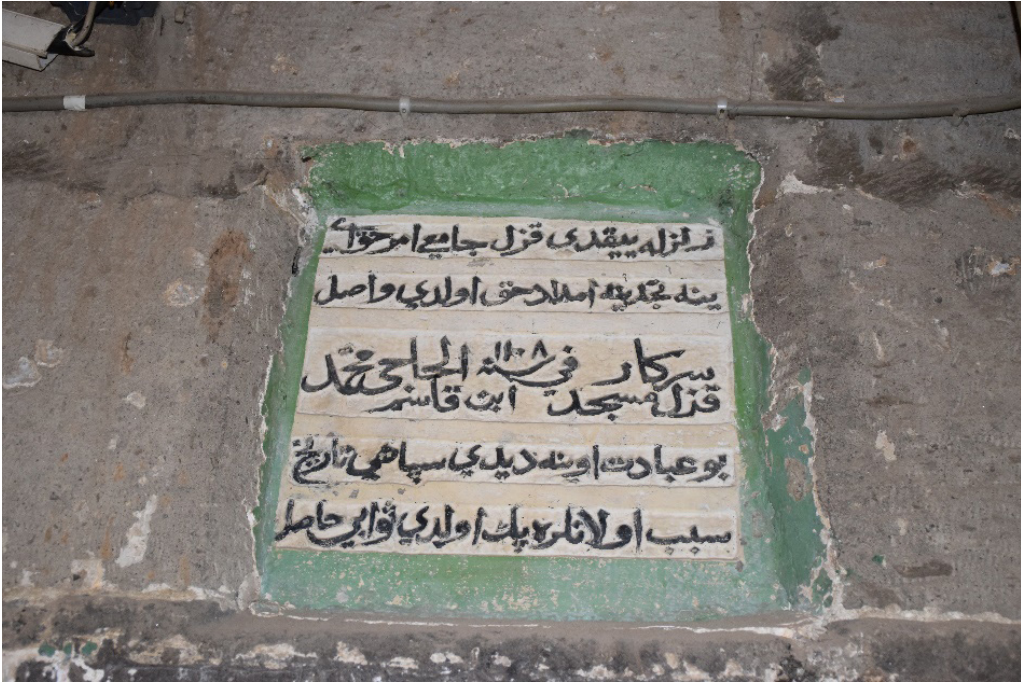 زلزله ييقدى قزل جامعى امر خداى
ينه تجديدينه امداد حق اولدي واصل
سركار في سنه ١١٠٨ الحاجى محمد
قزل مسجد ابن قاسم
بو عبادت اوينه ديدي سپاهي تاريخ
سبب اولانلره پك اولدي ثوابي حاصل